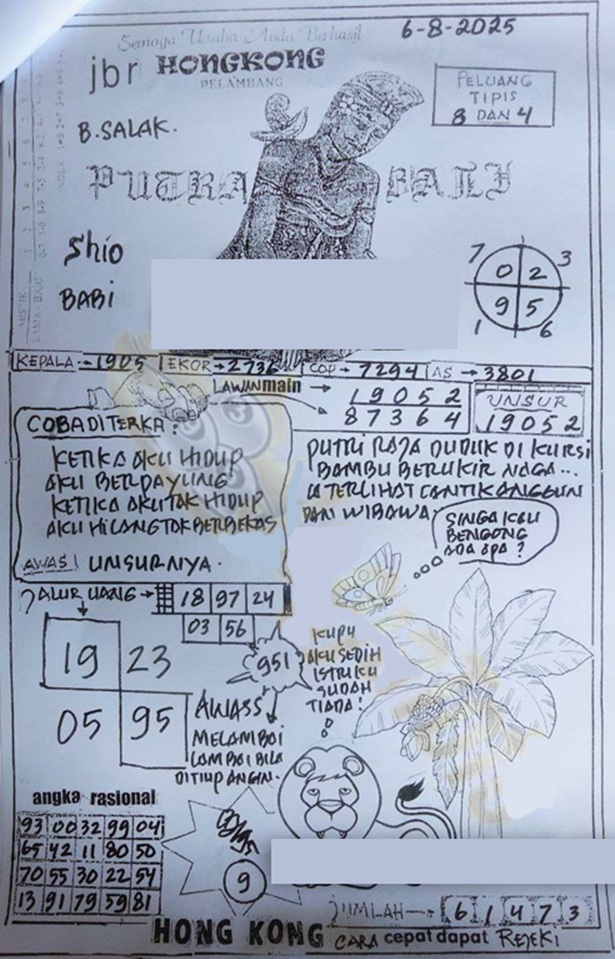 6-8-2025
Semoga Usaha Anda Berhasil
jbr HONGKONG
PELAMBANG
PELUANG
TIPIS
8 DAN 4
B.SALAK.
PUTRA BALI
Shio
BABI
7 3
0 2
9 5
1 6
KEPALA → 1905 EKOR → 2736 COP → 7294 AS → 3801
LAWAN main →
19052
87364
UNSUR
19052
COBA DITERKA :
KETIKA AKU HIDUP
AKU BERDAYUNG
KETIKA AKU TAK HIDUP
AKU HILANG TAK BERBEKAS
AWAS! UNSURNYA.
PUTRI RAJA DUDUK DI KURSI
BAMBU BERUKIR NAGA...
IA TERLIHAT CANTIK ANGGUN
DAN WIBAWA.
SINGA KAU
BENGONG
ADA APA ?
JALUR UANG → 18 97 24
03 56
951
KUPU
AKU SEDIH
ISTRIKU
SUDAH
TIADA!
19 23
05 95
AWASS
MELAMBAI
LAMBAI BILA
DITIUP ANGIN.
angka rasional
93 00 32 99 04
65 42 11 80 50
70 55 30 22 54
13 91 79 59 81
9
JUMLAH → 6 1 4 7 3
HONG KONG CARA cepat dapat REJEKI